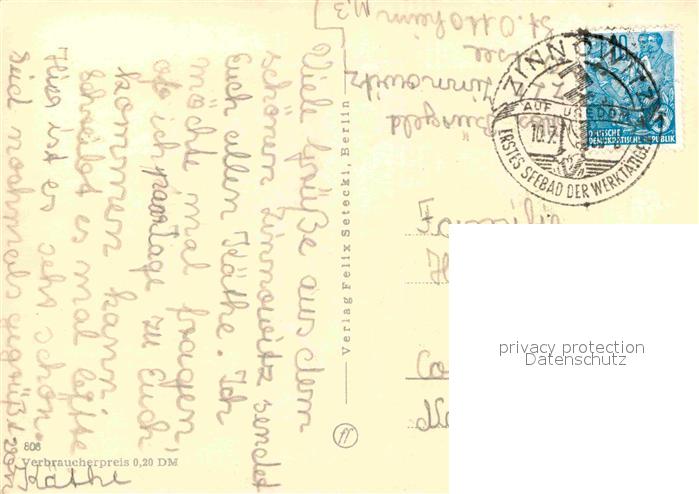 Viele Grüße aus dem
schönen Zinnowitz sendet
Euch allen Käthe. Ich
möchte mal fragen,
ob ich paar Tage zu Euch
kommen kann
schreibt es mal bitte
Hier ist es sehr schön.
Seid nochmals gegrüßt von
Käthe
Verlag Felix Setecki, Berlin
806
Verbraucherpreis 0,20 DM
Zinnowitz
St. Ottoheim
ZINNOWITZ
AUF USEDOM
10.7.
ERSTES SEEBAD DER WERKTÄTIGEN
10
DEUTSCHE
DEMOKRATISCHE REPUBLIK
privacy protection
Datenschutz